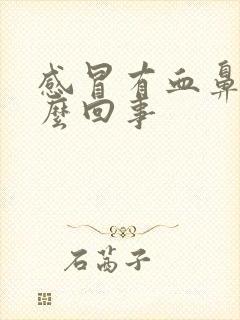 感冒有血鼻
麼回事
石茜子